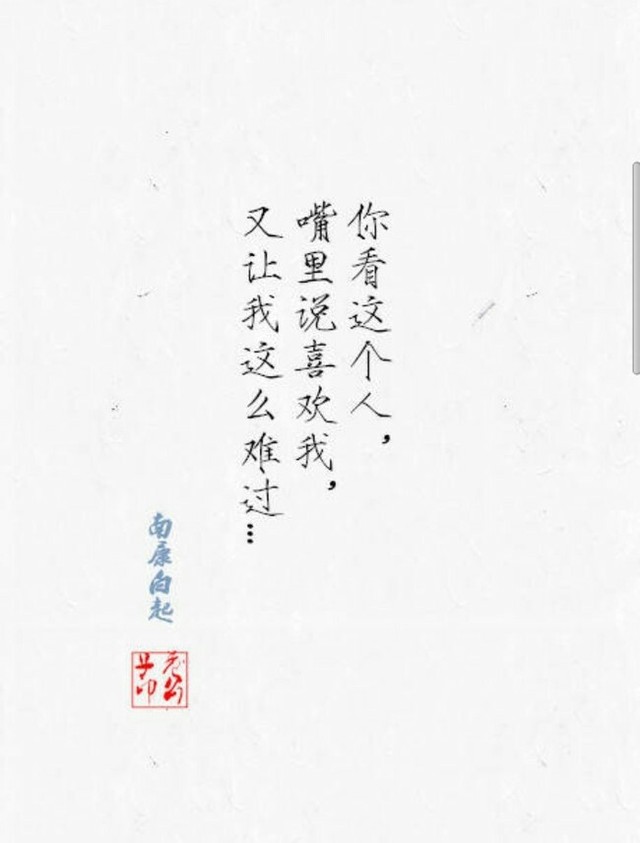 你看这个人，
嘴里说喜欢我，
又让我这么难过…
南康白起